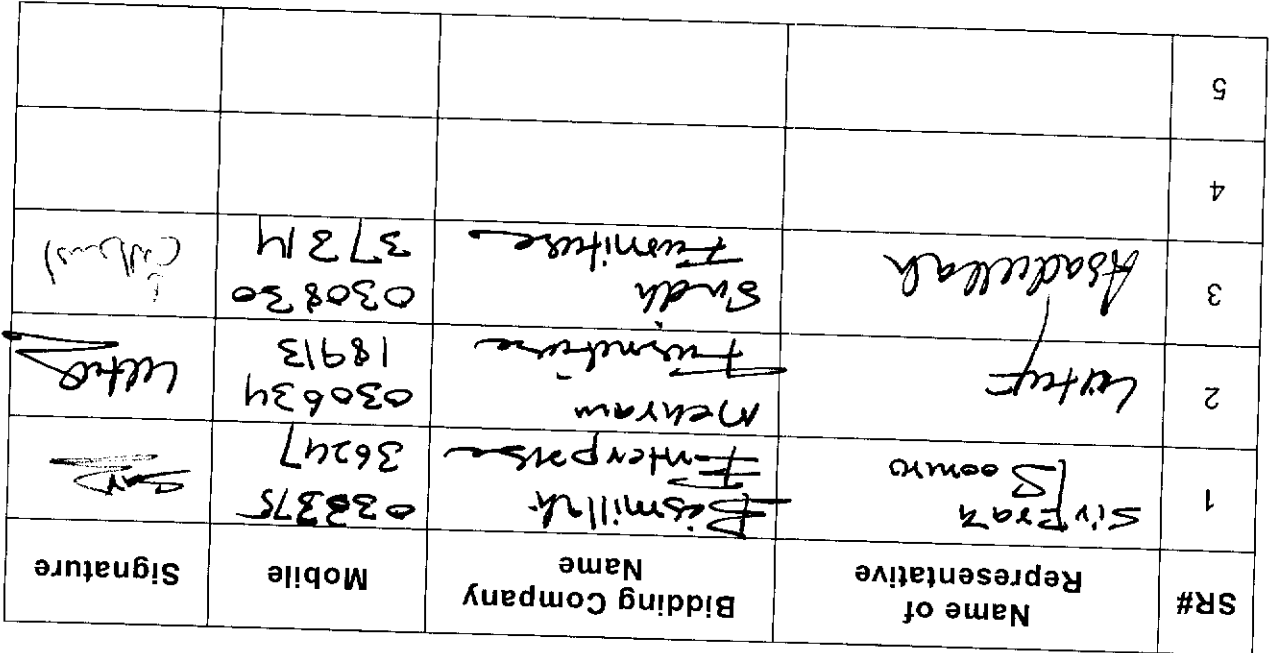 SR#
Name of
Representative
Bidding Company
Name
Mobile
Signature
1
Soomro
Bismillah
Enterprise
36247
2
Mehran
Furniture
030634
18913
3
Asadullah
Sindh
Furniture
030830
37314
4
5